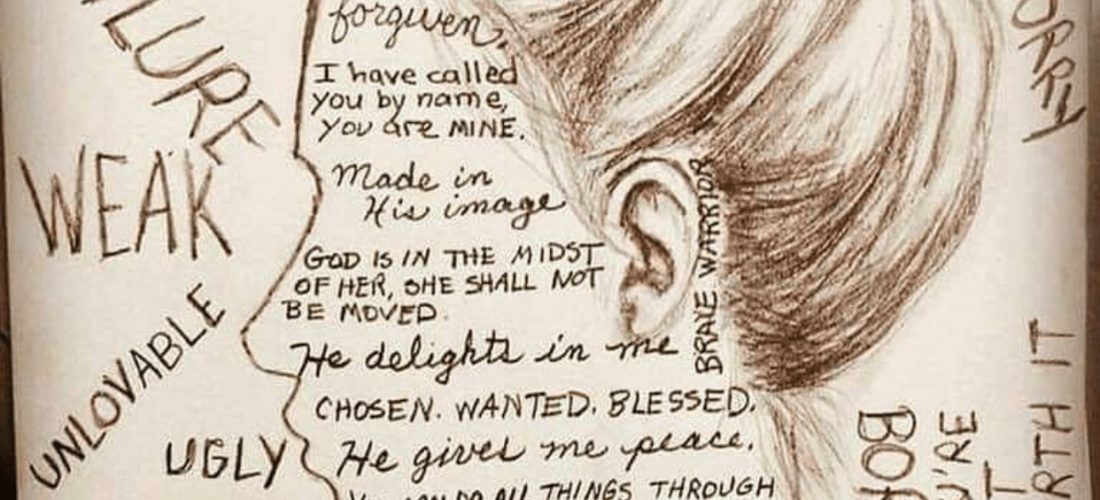 ILURE
WEAK
UNLOVABLE
UGLY
forgiven.
I have called
you by name,
you are MINE.
Made in
His image
GOD IS IN THE MIDST
OF HER, SHE SHALL NOT
BE MOVED.
He delights in me
CHOSEN. WANTED. BLESSED.
He gives me peace.
DO ALL THINGS THROUGH
BRAVE WARRIOR
ORRY
U'RE
RTH IT